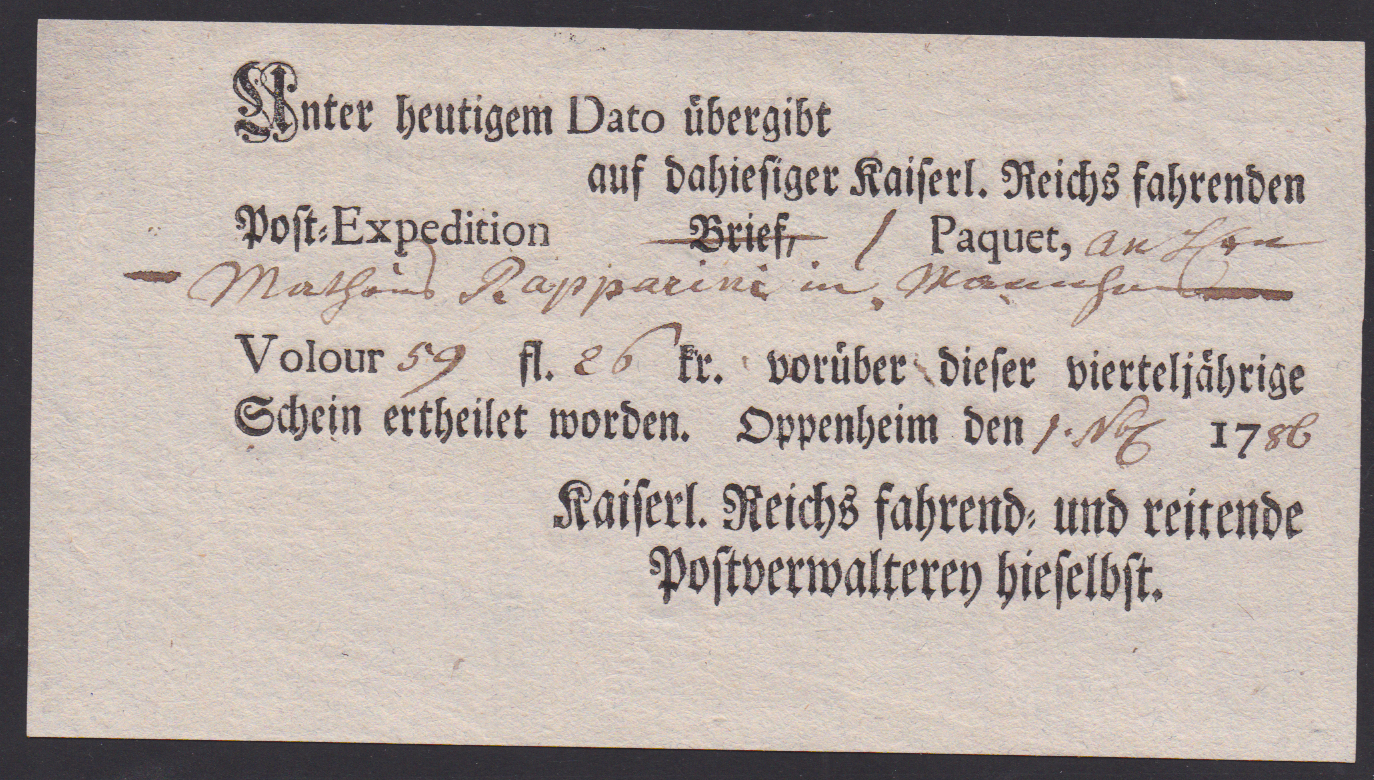 Unter heutigem Dato übergibt
auf dahiesiger Kaiſerl. Reichs fahrenden
Poſt-Expedition Brief, 1 Paquet, an
Rapparini in Mannheim
Volour 59 fl. 26 kr. vorüber dieſer vierteljährige
Schein ertheilet worden. Oppenheim den 1. 1786
Kaiſerl. Reichs fahrend- und reitende
Poſtverwalterey hieſelbſt.